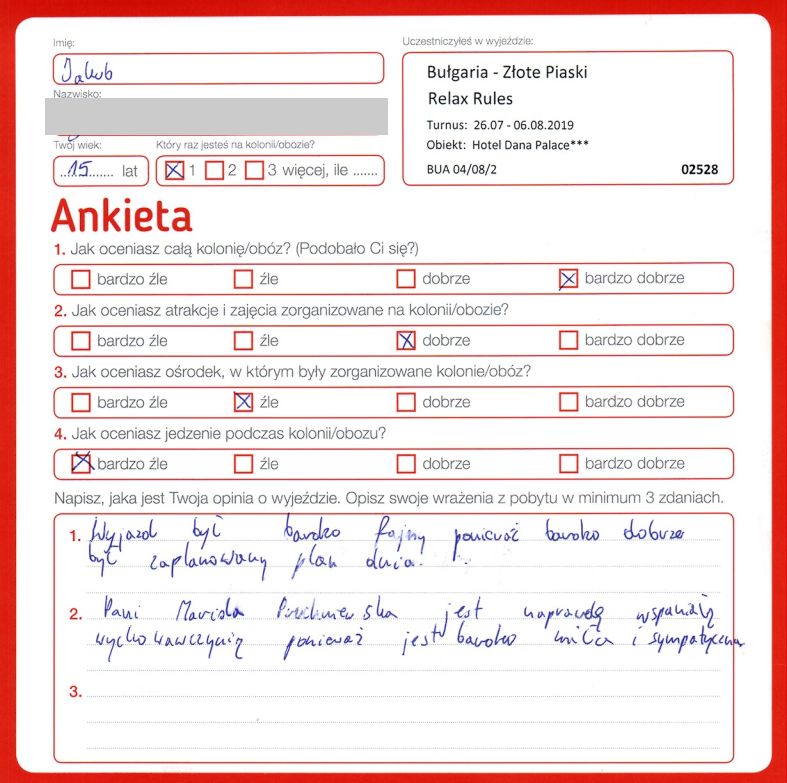 Imię:
Jakub
Nazwisko:
Twój wiek:
15 lat
Który raz jesteś na kolonii/obozie?
1 2 3 więcej, ile .......
Uczestniczyłeś w wyjeździe:
Bułgaria - Złote Piaski
Relax Rules
Turnus: 26.07 - 06.08.2019
Obiekt: Hotel Dana Palace***
BUA 04/08/2 02528
Ankieta
1. Jak oceniasz całą kolonię/obóz? (Podobało Ci się?)
bardzo źle źle dobrze bardzo dobrze
2. Jak oceniasz atrakcje i zajęcia zorganizowane na kolonii/obozie?
bardzo źle źle dobrze bardzo dobrze
3. Jak oceniasz ośrodek, w którym były zorganizowane kolonie/obóz?
bardzo źle źle dobrze bardzo dobrze
4. Jak oceniasz jedzenie podczas kolonii/obozu?
bardzo źle źle dobrze bardzo dobrze
Napisz, jaka jest Twoja opinia o wyjeździe. Opisz swoje wrażenia z pobytu w minimum 3 zdaniach.
1. Wyjazd był bardzo fajny ponieważ bardzo dobrze
był zaplanowany plan dnia.
2. Pani Mariola jest naprawdę wspaniałą
wychowawczynią ponieważ jest bardzo miła i sympatyczna
3.